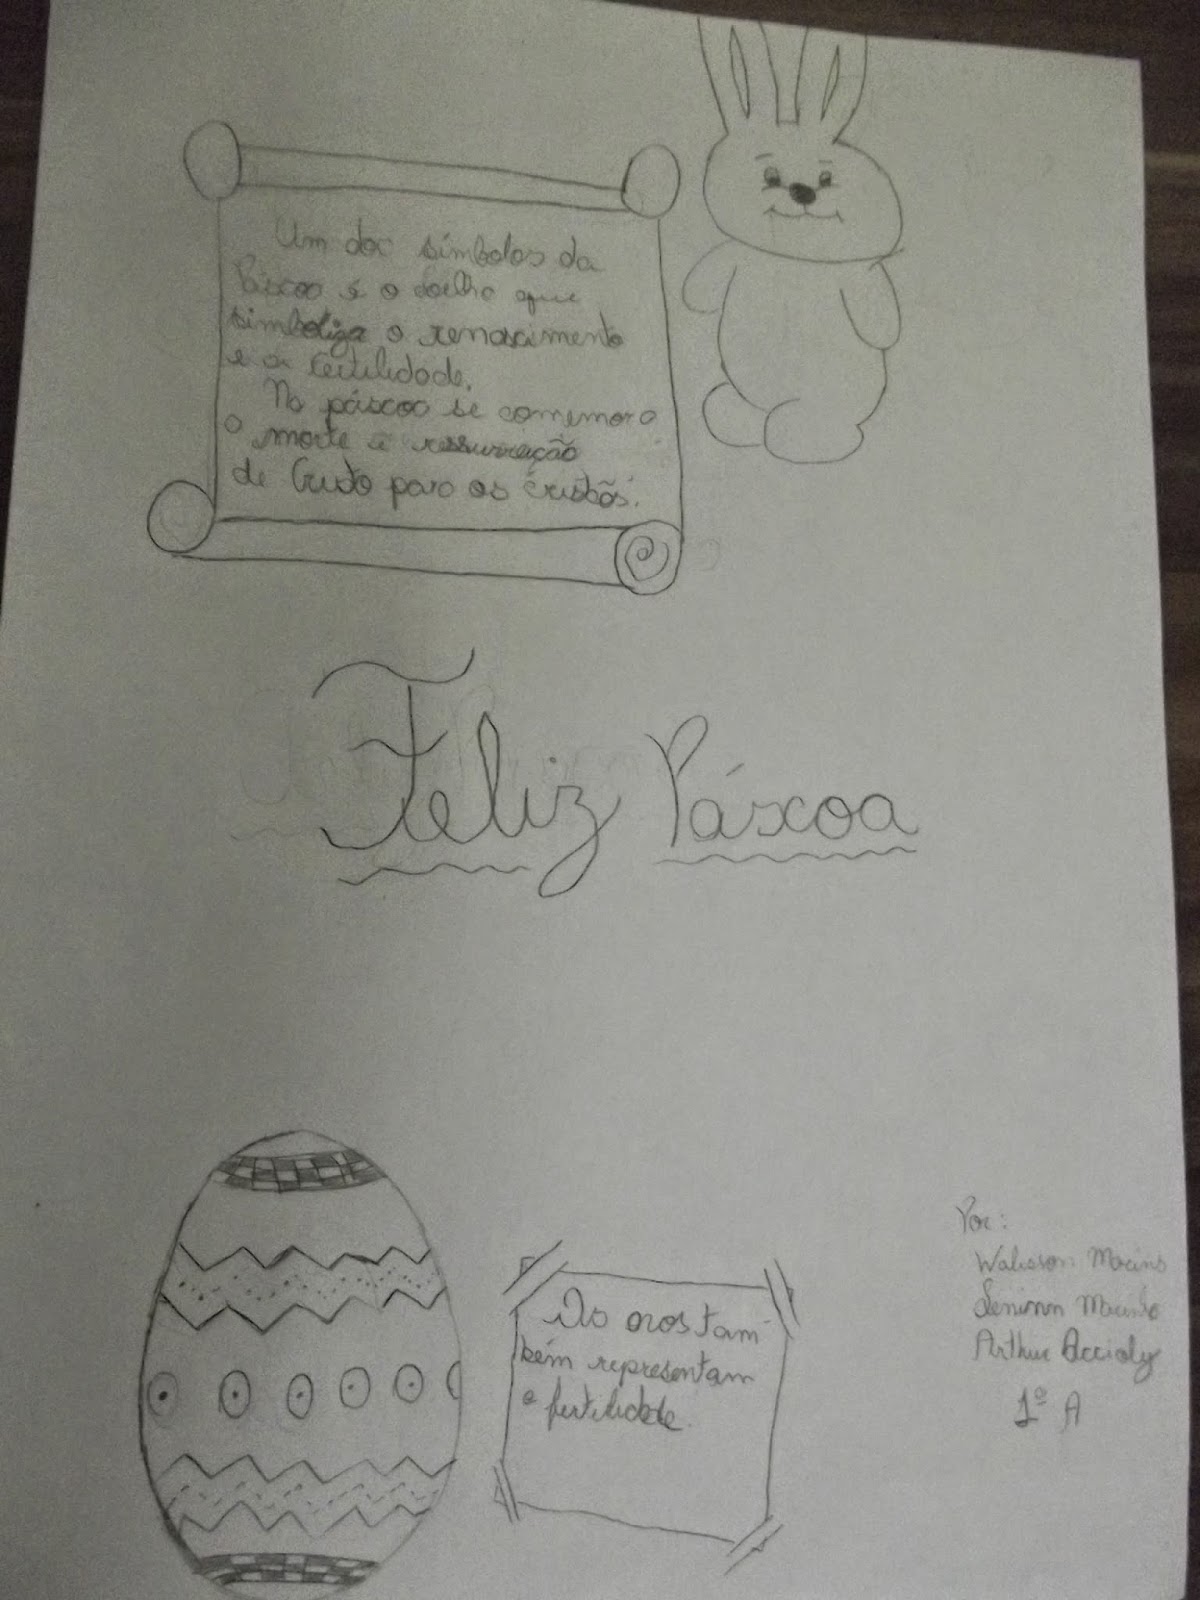 Um dos símbolos da
Páscoa é o Coelho que
simboliza o renascimento
e a fertilidade.
Na páscoa se comemora
a morte e ressurreição
de Cristo para os cristãs.
Feliz Páscoa
Os ovos tam
bém representam
a fertilidade.
Por:
Walisson
Leninnn
Arthur Accioly
1º A